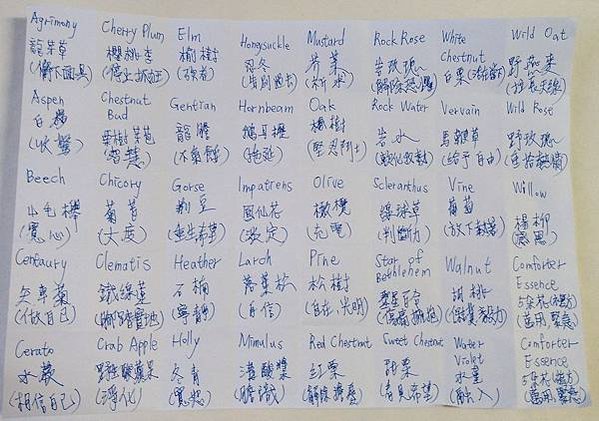 Agrimony
龍芽草
(卸下面具)
Cherry Plum
櫻桃李
Elm
榆樹
(強者)
Honeysuckle
忍冬
(告別過去)
Mustard
芥菜
Rock Rose
岩玫瑰
(解除恐懼)
White
Chestnut
白栗
Wild Oat
野燕麥
Aspen
白楊
Chestnut
Bud
栗樹芽苞
(智慧)
Gentian
龍膽
(不氣餒)
Hornbeam
鵝耳櫪
(拖延)
Oak
橡樹
(堅忍鬥士)
Rock Water
岩水
Vervain
馬鞭草
(給予自由)
Wild Rose
野玫瑰
Beech
山毛櫸
(寬心)
Chicory
菊苣
(大度)
Gorse
荊豆
(重生希望)
Impatiens
鳳仙花
(淡定)
Olive
橄欖
(充電)
Scleranthus
線球草
(判斷力)
Vine
葡萄
(放下執著)
Willow
楊柳
(感恩)
Centaury
矢車菊
(做自己)
Clematis
鐵線蓮
(腳踏實地)
Heather
石楠
(寧靜)
Larch
落葉松
(自信)
Pine
松樹
(自在、光明)
Star of
Bethlehem
聖星百合
(傷痛擁抱)
Walnut
胡桃
Comforter
Essence
(萬用、緊急)
Cerato
水蕨
(相信自己)
Crab Apple
野生酸蘋果
(淨化)
Holly
冬青
(寬恕)
Mimulus
溝酸漿
(膽識)
Red Chestnut
紅栗
(解除擔憂)
Sweet Chestnut
甜栗
(看見希望)
Water
Violet
水堇
(融入)
Comforter
Essence
(萬用緊急)